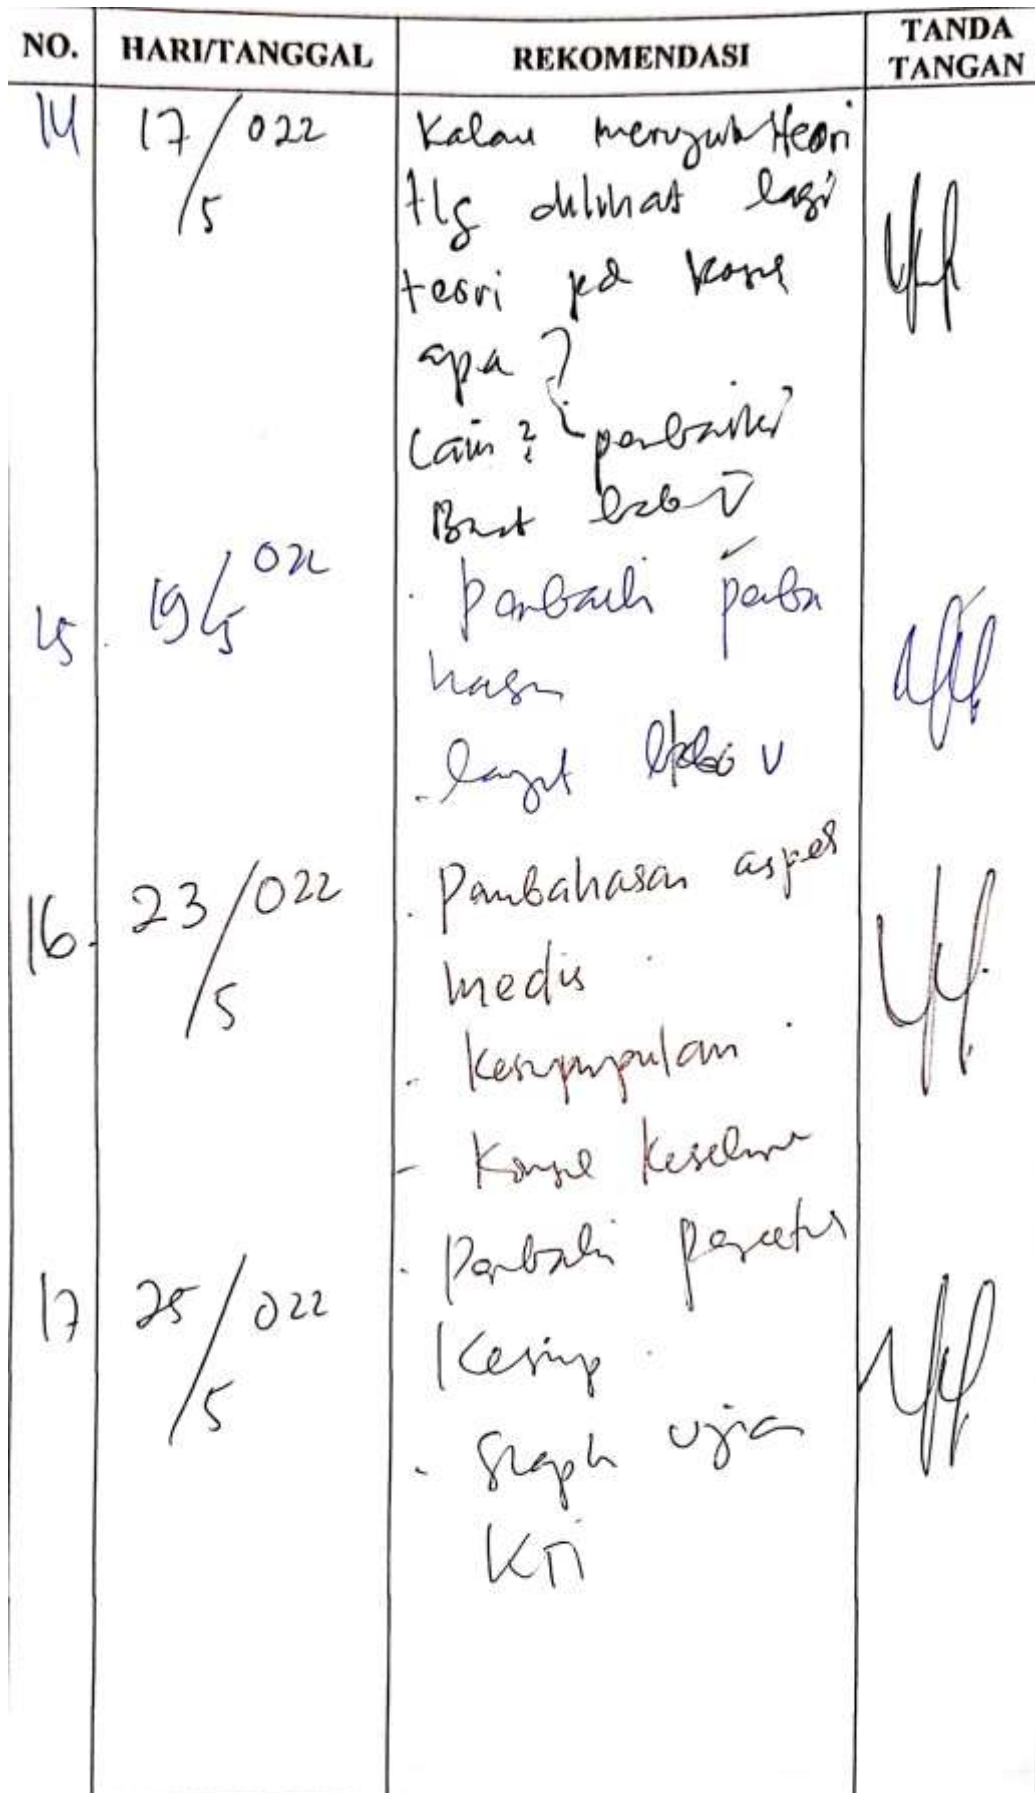 NO. HARI/TANGGAL REKOMENDASI TANDA TANGAN
14 17/5 022 Kalau teori
tlg dilihat lagi
teori pd kasus
apa?
Lain? perbaiki
Buat bab V
15. 19/5 022 Perbaiki pemba
hasan
lanjut bab V
16. 23/5 022 Pembahasan aspek
medis
Kesimpulan
- Konsul keseluruhan
17 25/5 022 Perbaiki
Kesimp
- Siapkan ujian
KTI